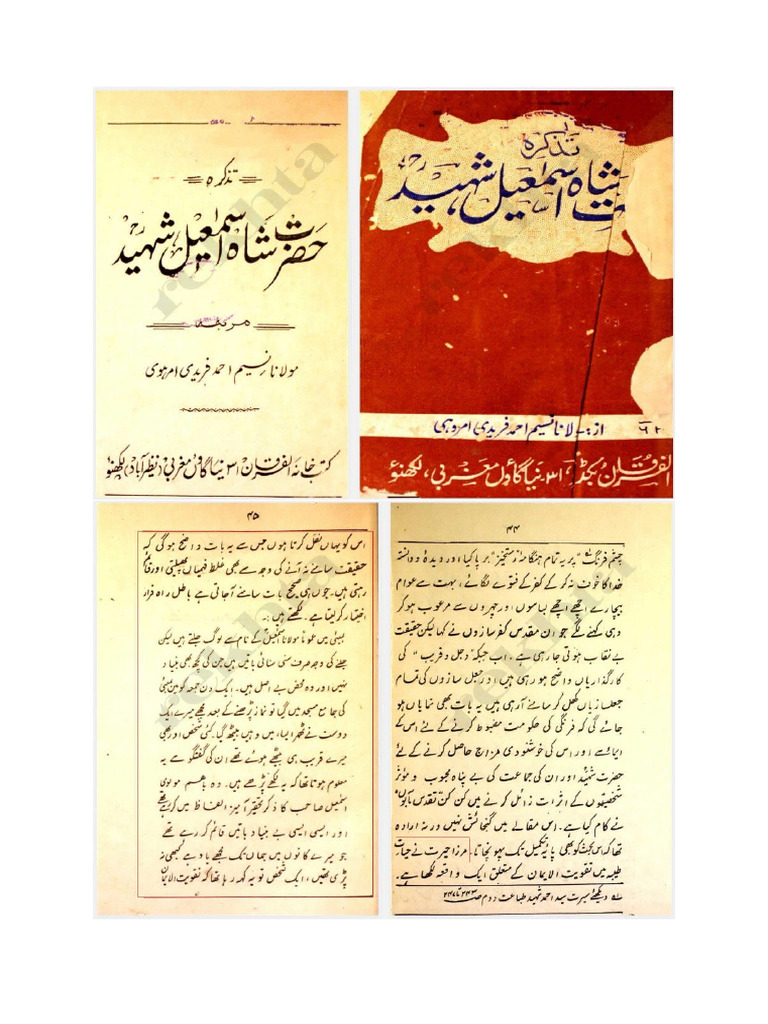 تذکرہ
حضرت شاہ اسمٰعیل شہید
مرتبہ
مولانا نسیم احمد فریدی امرہوی
کتب خانہ الفرقان ۳۱ نیا گاؤں مغربی (نظیرآباد) لکھنؤ
تذکرہ
شاہ اسمٰعیل شہید
از:۔ لانا نسیم احمد فریدی امروہی
الفرقان بکڈپو، ۳۱ نیا گاؤں مغربی، لکھنؤ
۴۴
چشم فرنگ پر یہ تمام ہنگامۂ رستخیز برپا کیا اور دیدہ و دانستہ
خدا کا خوف نہ کر کے کفر کے فتوے لگائے، بہت سے عوام
بیچارے اچھے اچھے لباسوں اور چہروں سے مرعوب ہو کر
وہی کہنے لگے جو ان مقدس کفر سازوں نے کہا لیکن حقیقت
بے نقاب ہوتی جا رہی ہے۔ اب جبکہ "دجل و فریب" کی
کارگذاریاں واضح ہو رہی ہیں اور جعل سازوں کی تمام
جعلسازیاں کھل کر سامنے آ رہی ہیں یہ بات بھی نمایاں ہو
جائے گی کہ فرنگی کی حکومت مضبوط کرنے کے لئے اس کے
ایماء سے اور اس کی خوشنودی مزاج حاصل کرنے کے لئے
حضرت شہیدؒ اور ان کی جماعت کی بے پناہ محبوب و مؤثر
شخصیتوں کے اثرات زائل کرنے میں کن کن تقدس مآبوں
نے کام کیا ہے۔ اس مقالے میں گنجائش نہیں ورنہ ارادہ
تھا کہ اس بحث کو بھی پایۂ تکمیل تک پہونچاتا۔ مرزا حیرت نے حیات
طیبہ میں تقویت الایمان کے متعلق ایک واقعہ لکھا ہے۔
لہ دیکھئے سیرت سید احمد شہید طباعت دوم ص ۲۴۳ تا ۲۴۷
۴۵
اس کو یہاں نقل کرتا ہوں جس سے یہ بات واضح ہو گی کہ
حقیقت سامنے نہ آنے کی وجہ سے بھی غلط فہمیاں پھیلتی اور قائم
رہتی ہیں۔ جوں ہی صحیح بات سامنے آجاتی ہے باطل راہ فرار
اختیار کر لیتا ہے۔ لکھتے ہیں:۔
بمبئی میں عموماً مولانا اسمٰعیلؒ کے نام سے لوگ جلتے ہیں لیکن
جلنے کی وجہ صرف سنی سنائی باتیں ہیں جن کی کچھ بھی بنیاد
نہیں اور وہ محض بے اصل ہیں۔ ایک دن جمعہ کو میں بمبئی
کی جامع مسجد میں گیا تو نماز پڑھنے کے بعد مجھے میرے ایک
دوست نے ٹھہرا لیا، میں وہیں بیٹھ گیا۔ کئی شخص اور بھی
میرے قریب ہی بیٹھے ہوئے تھے ان کی گفتگو سے یہ
معلوم ہوتا تھا کہ یہ لکھے پڑھے ہیں۔ وہ باہم مولوی
اسمٰعیل صاحب کا ذکر تحقیر آمیز الفاظ میں کر رہے تھے
اور ایسی ایسی بے بنیاد باتیں قائم کر رہے تھے
جو میرے کانوں میں جہاں تک مجھے یاد ہے کبھی نہ
پڑی تھیں، ایک شخص تو یہ کہہ رہا تھا کہ تقویت الایمان